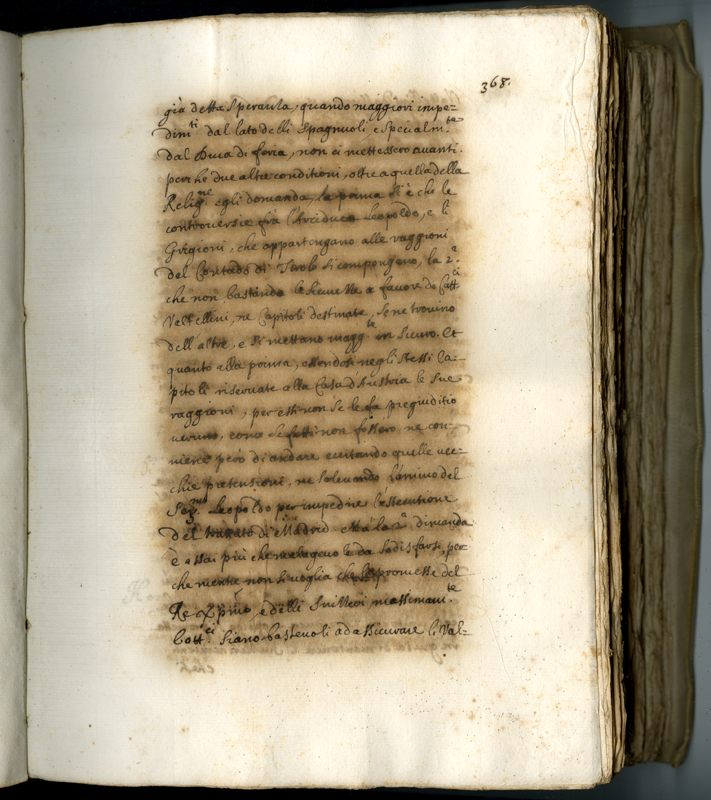 368.
già detta Speranza, quando maggiori impe-
dim.ti dal lato delli Spagnuoli e specialm.te
dal Duca di feria, non ci mettessero avanti.
perche due altre conditioni, oltre a quella della
Relig.ne egli domanda, la prima si è che le
controversie fra l'Arciduca Leopoldo, e li
Grigioni, che appartengano alle raggioni
del Contado di Tirolo si compongano, la 2.a
che non bastando le sicurezze a favore de Catt.ci
Valtellini, ne Capitoli destinate, se ne trovino
dell'altre, e si mettano in sicuro. Et
quanto alla prima, essendosi negli stessi Ca-
pitoli riservate alla Casa d'Austria le sue
raggioni, per essi non se le fa pregiuditio
veruno, come se fatti non fossero, ne con-
viene però di andare evitando quelle vec-
chie pretensioni, ne solevando l'animo del
Leopoldo per impedire l'essecutione
del trattato di Madrid. Ma la 2.a dimanda
è assai più che malagevole da sodisfarsi, per
che mentre non si voglia che le promesse del
Re e delli Svizzeri massimam.te
Catt.ci siano bastevoli ad assicurare li Val-